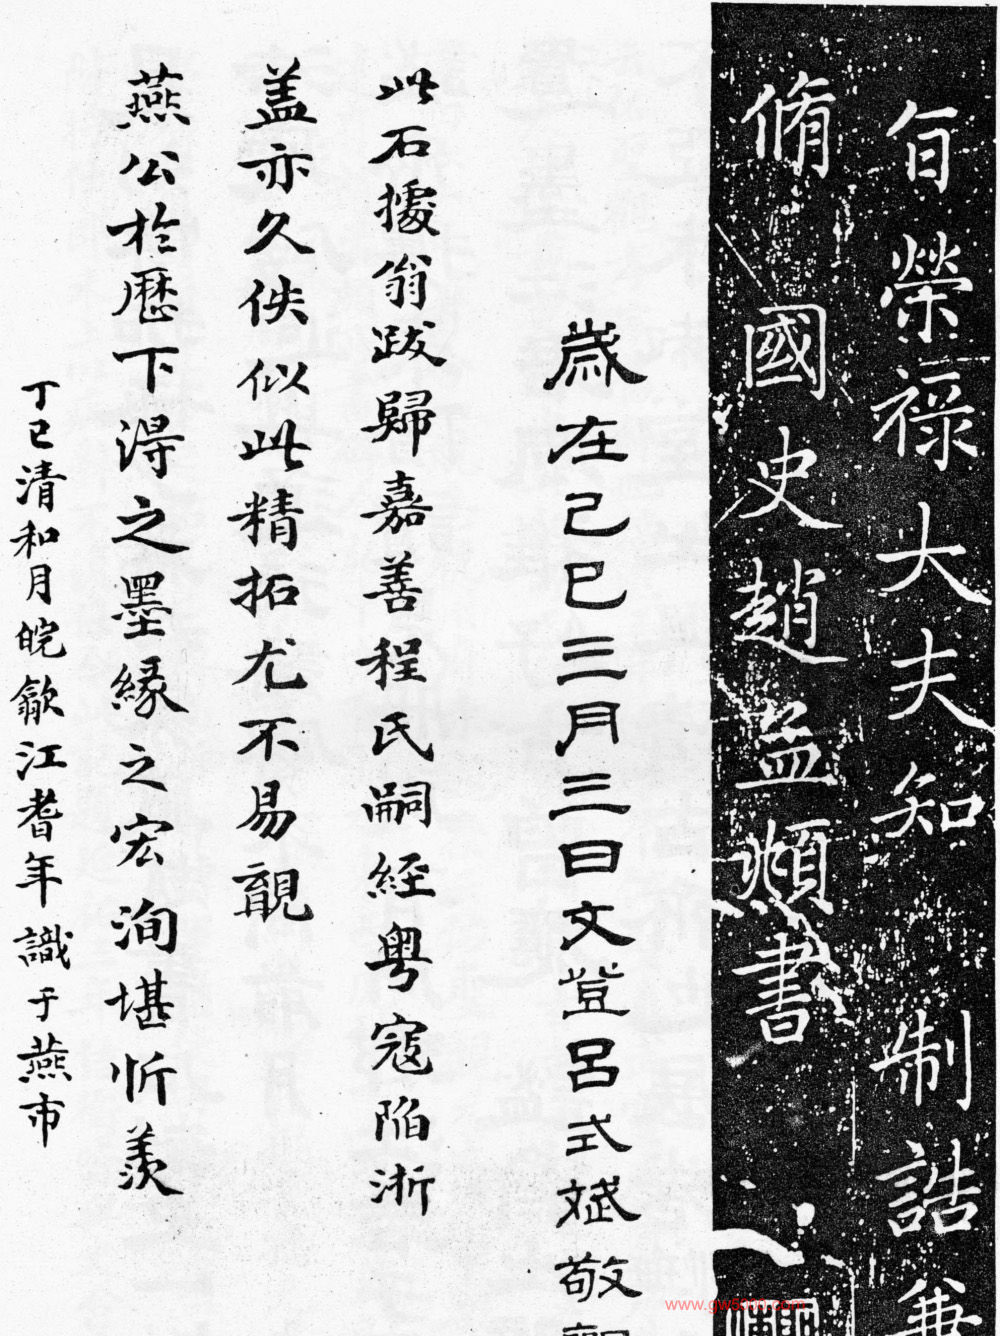 自榮祿大夫知制誥兼
脩國史趙孟頫書
歲在己巳三月三日文登呂式斌敬觀
此石據翁跋歸嘉善程氏嗣經粵寇陷浙
盖亦久佚似此精拓尤不易覯
燕公於歷下淂之墨緣之宏洵堪忻羨
丁巳清和月皖歙江耆年識于燕市
www.gw8000.com